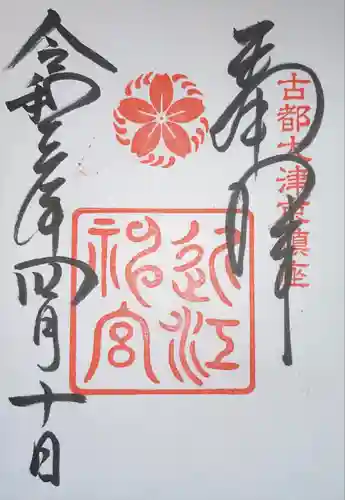 奉拝
古都大津宮鎮座
近江神宮
令和三年四月十日